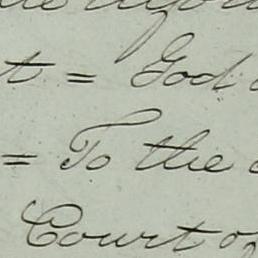 t = God
= To the
Court of